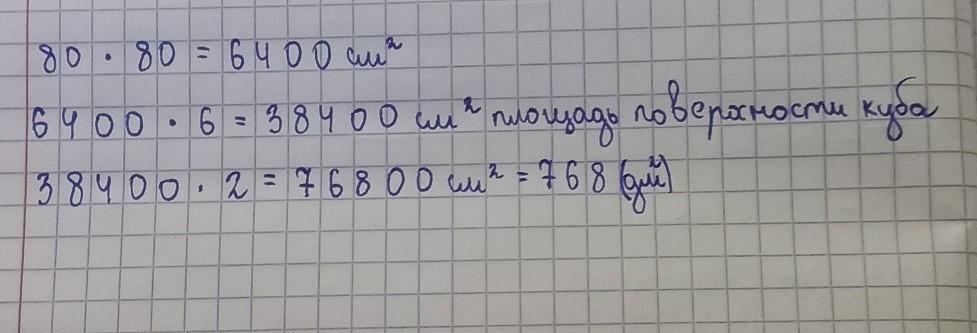 80 · 80 = 6400 см²
6400 · 6 = 38400 см² площадь поверхности куба
38400 · 2 = 76800 см² = 768 (дм²)